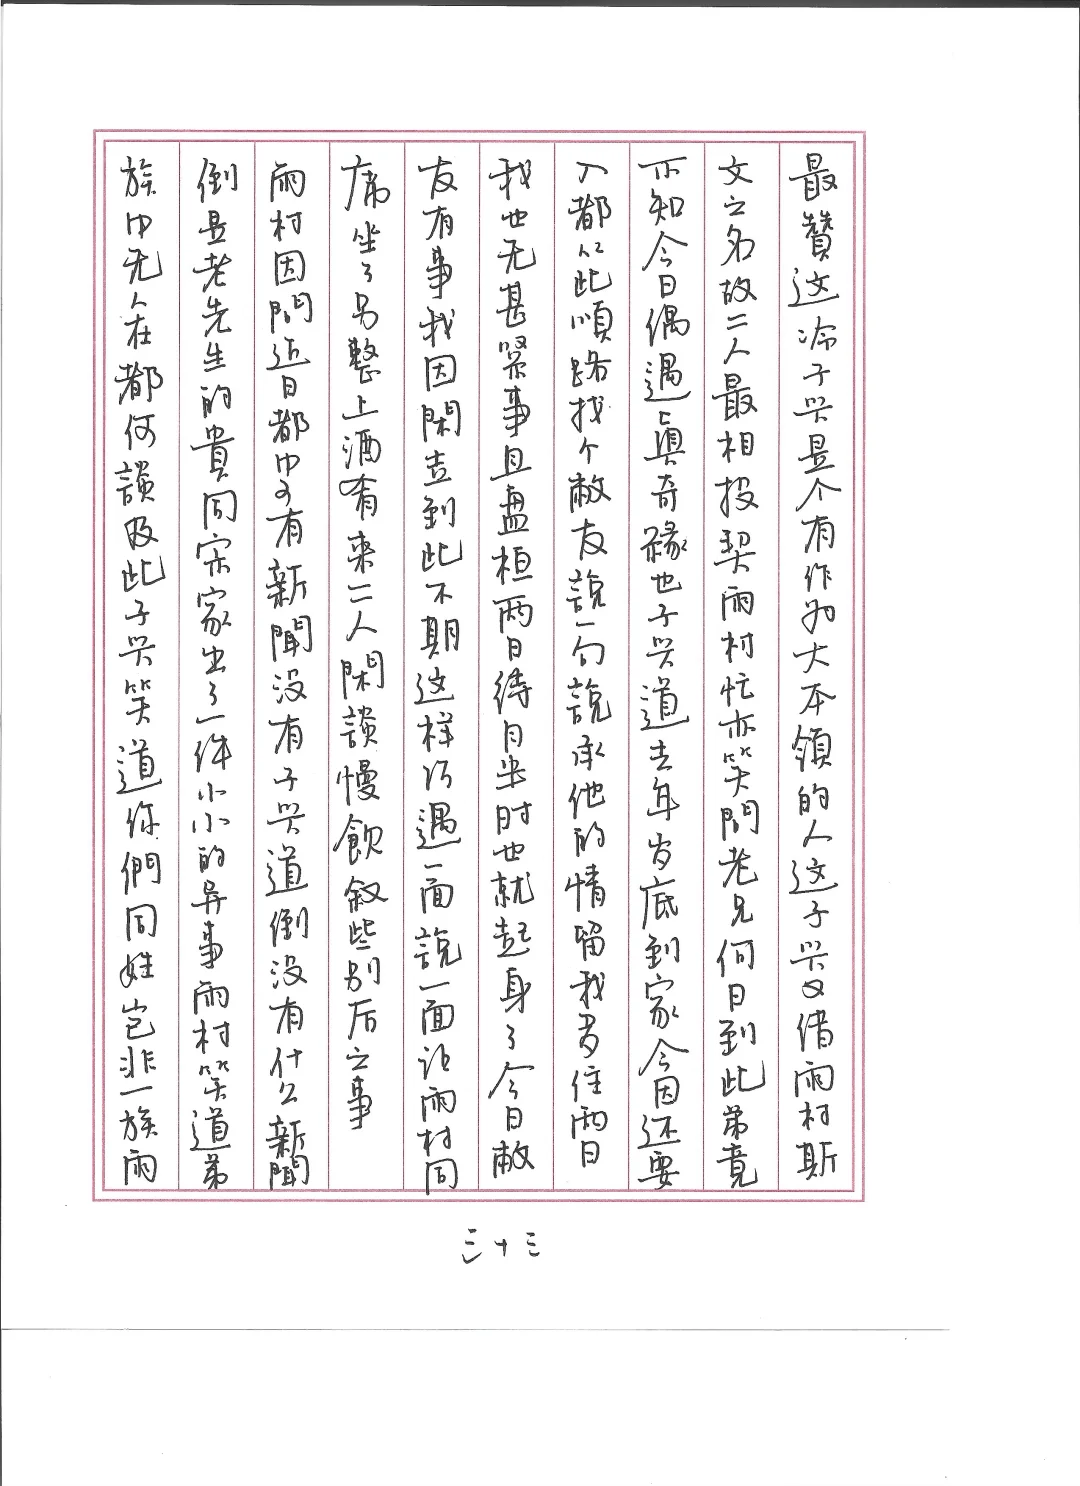 最贊这冷子兴是个有作为大本領的人这子兴又借雨村斯
文之名故二人最相投契雨村忙亦笑問老兄何日到此弟竟
不知今日偶遇真奇緣也子兴道去年岁底到家今因还要
入都从此順路找个敝友說一句說承他的情留我多住兩日
我也无甚緊事且盤桓两日待月半时也就起身了今日敝
友有事我因閑走到此不期这样巧遇一面說一面让雨村同
席坐了另整上酒肴来二人閑談慢飲叙些别后之事
雨村因問近日都中可有新聞没有子兴道倒没有什么新聞
倒是老先生的貴同宗家出了一件小小的异事雨村笑道弟
族中无人在都何談及此子兴笑道你們同姓岂非一族雨
三十三